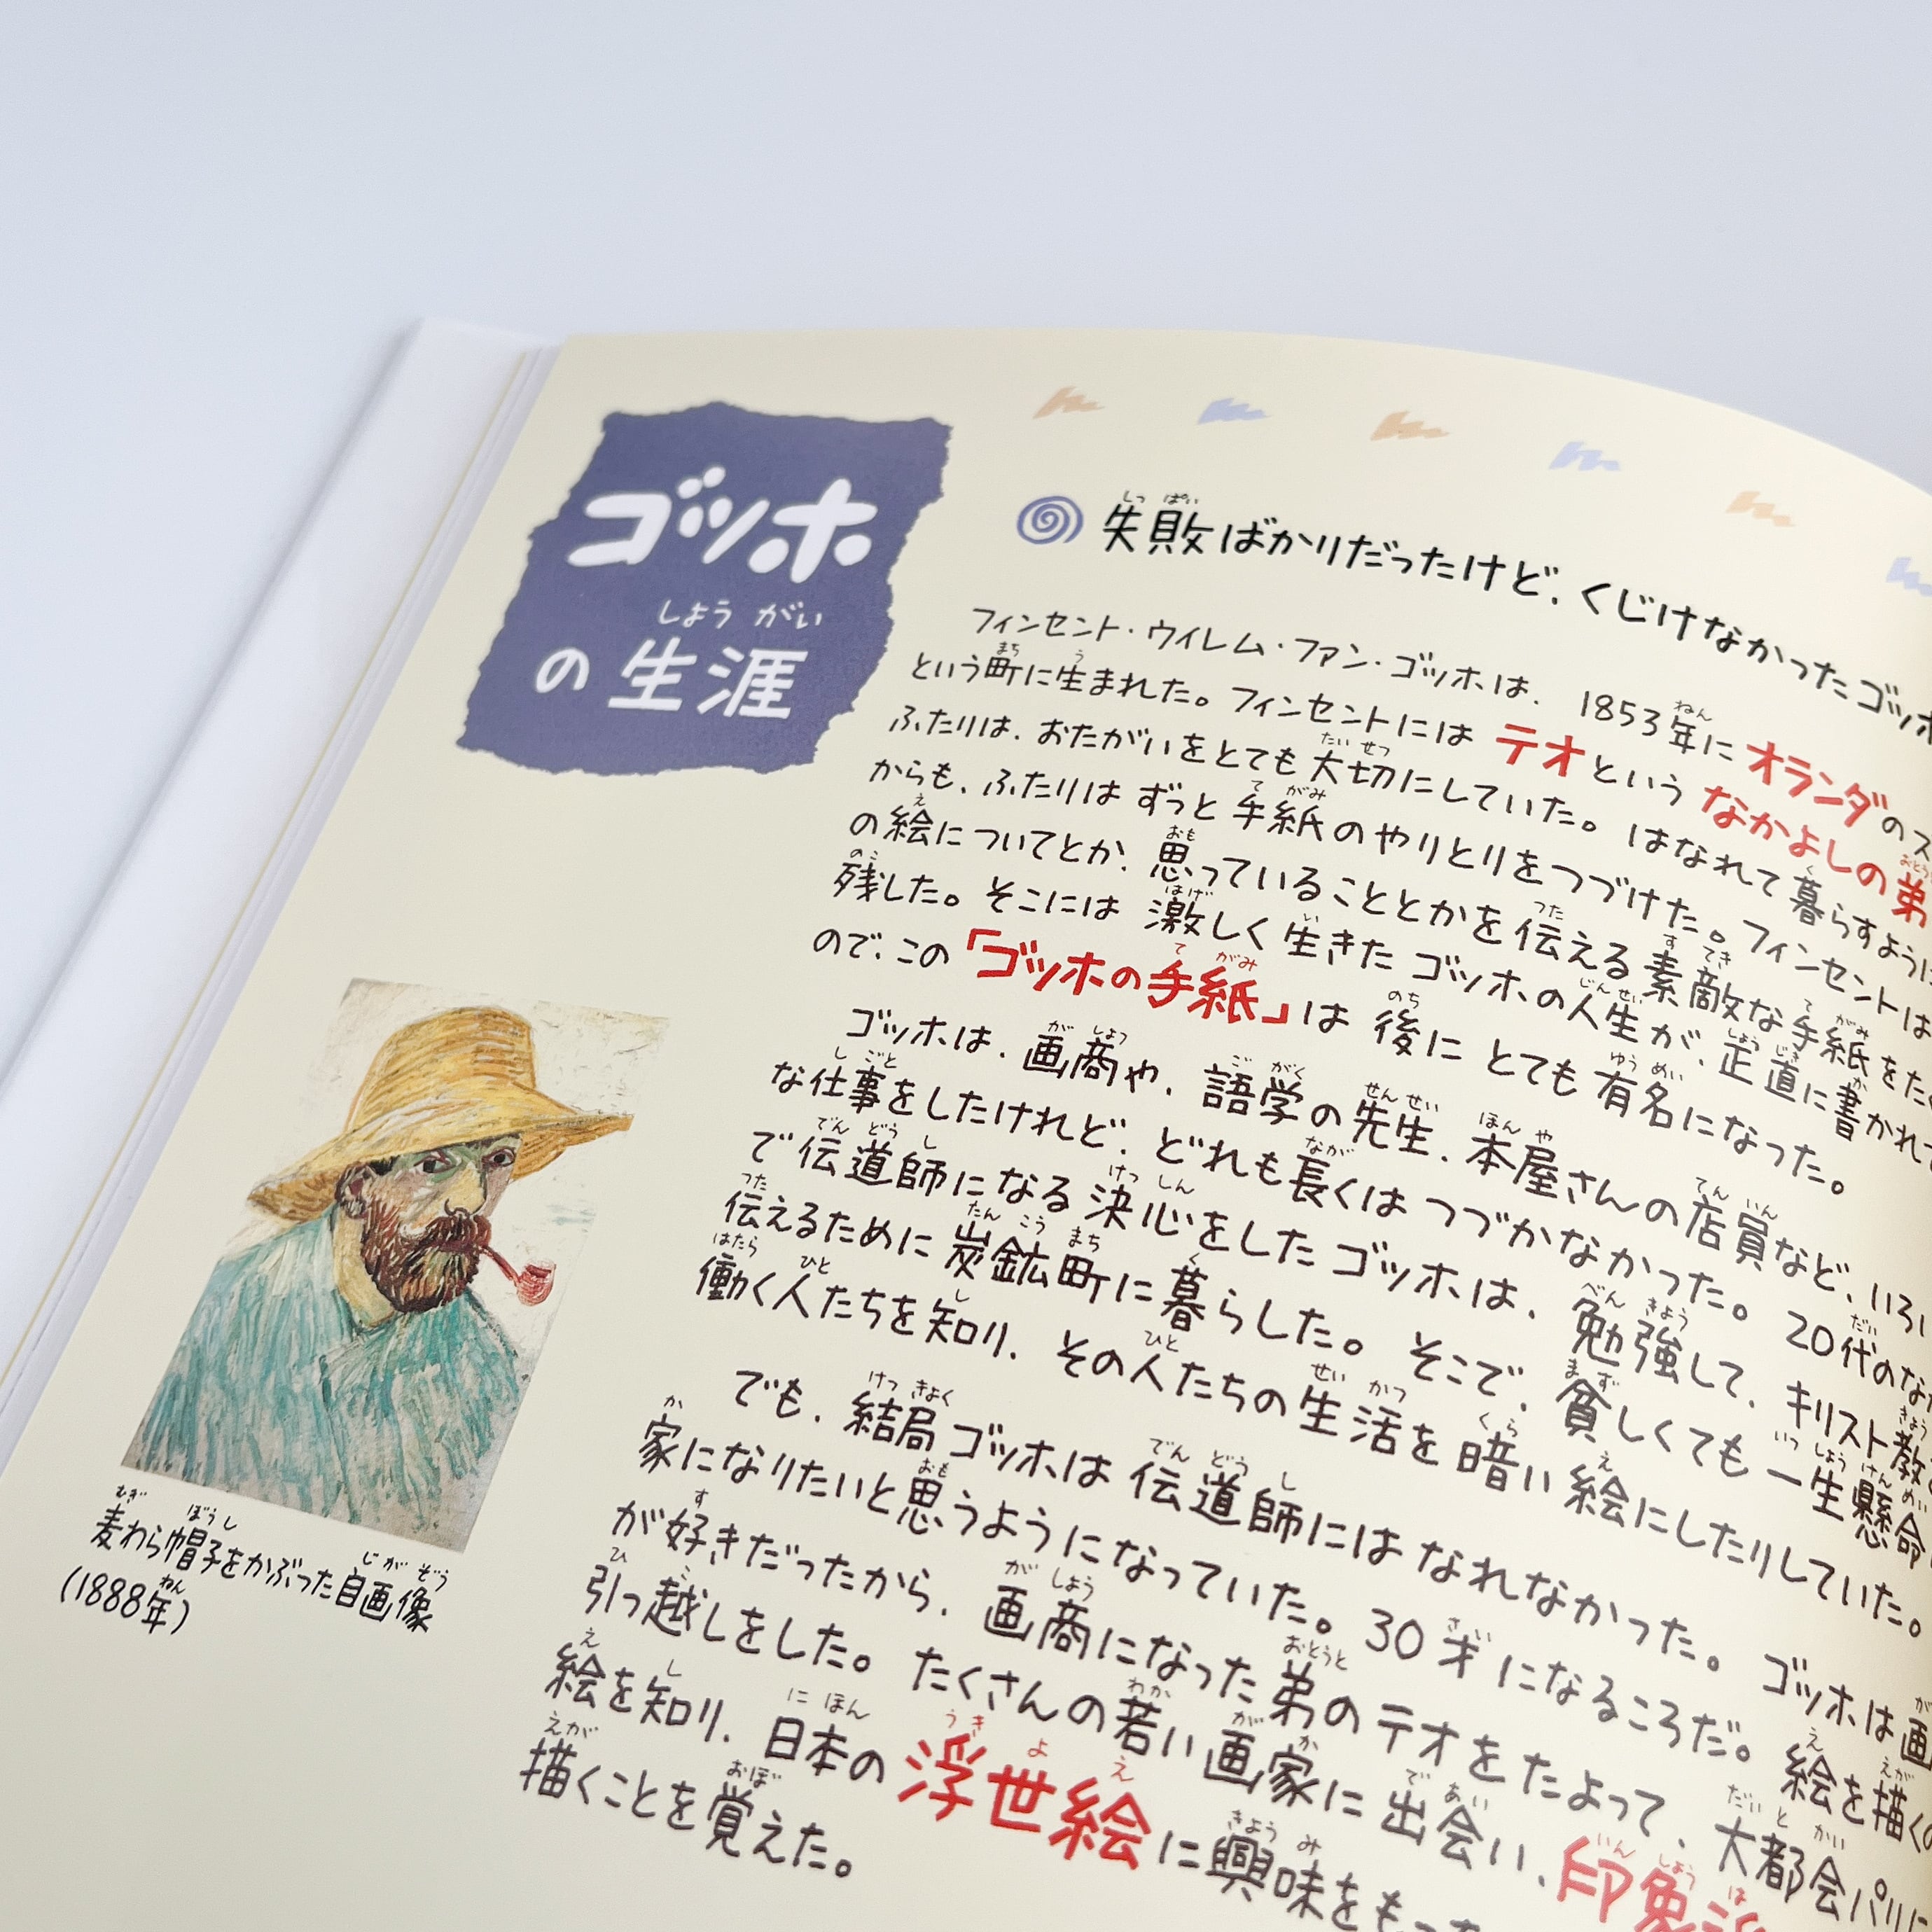 ゴッホ
の生涯
しょう がい
失敗ばかりだったけど、くじけなかったゴッホ
しっ ぱい
フィンセント・ウイレム・ファン・ゴッホは、1853年にオランダのス
という町に生まれた。フィンセントには テオという なかよしの弟
ふたりは、おたがいをとても大切にしていた。はなれて暮らすように
からも、ふたりは ずっと 手紙のやりとりをつづけた。フィンセントは
の絵についてとか、思っていることとかを伝える素敵な手紙をたく
残した。そこには 激しく生きた ゴッホの人生が、正直に書かれて
ので、この「ゴッホの手紙」は 後に とても 有名になった。
ゴッホは、画商や、語学の先生、本屋さんの店員など、いろい
な仕事をしたけれど、どれも長くは つづかなかった。20代のな
で伝道師になる決心をしたゴッホは、勉強して、キリスト教
伝えるために炭鉱町に暮らした。そこで、貧しくても一生懸命
働く人たちを知り、その人たちの生活を暗い絵にしたりしていた。
でも、結局ゴッホは伝道師にはなれなかった。ゴッホは画
家になりたいと思うようになっていた。30才になるころだ。絵を描く
が好きだったから、画商になった弟のテオをたよって、大都会パリに
引っ越しをした。たくさんの若い画家に出会い、印象派
絵を知り、日本の浮世絵に興味をもった
描くことを覚えた。
麦わら帽子をかぶった自画像
(1888年)